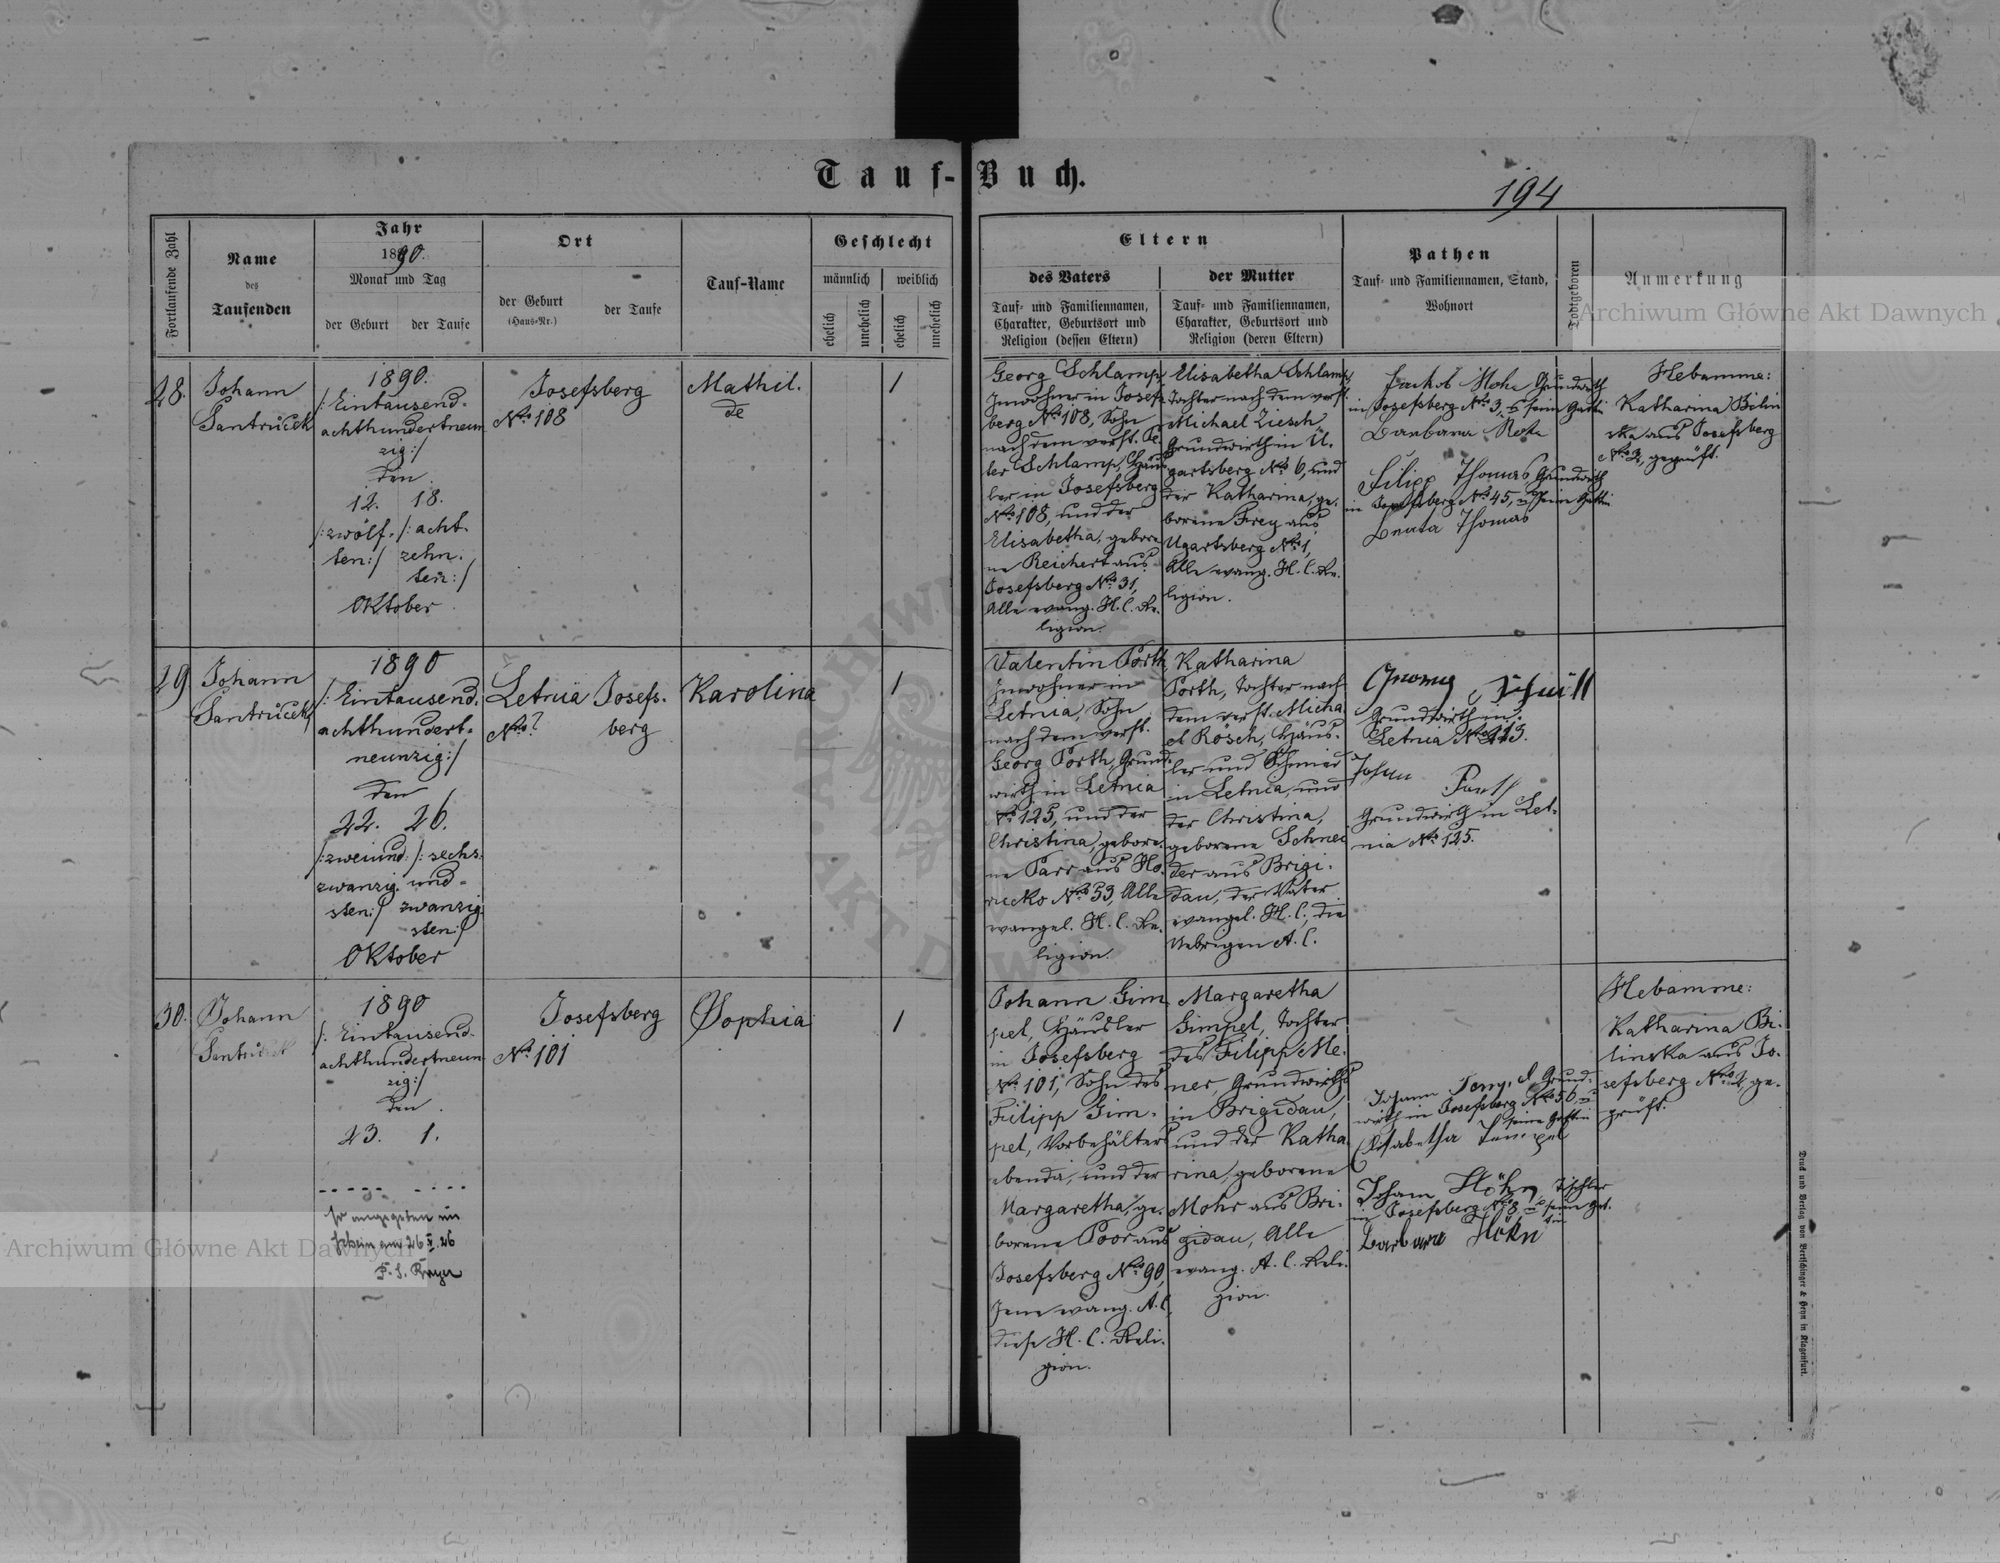 Tauf-Buch.
194
Fortlaufende Zahl
Name
des
Taufenden
Jahr
1890.
Monat und Tag
der Geburt
der Taufe
Ort
der Geburt
(Haus-Nr.)
der Taufe
Tauf-Name
Geschlecht
männlich
weiblich
ehelich
unehelich
ehelich
unehelich
Eltern
des Vaters
Tauf- und Familiennamen,
Charakter, Geburtsort und
Religion (dessen Eltern)
der Mutter
Tauf- und Familiennamen,
Charakter, Geburtsort und
Religion (deren Eltern)
Pathen
Tauf- und Familiennamen, Stand,
Wohnort
Todtgeboren
Anmerkung
Archiwum Główne Akt Dawnych
28.
Johann
Santrůček
1890.
/: Eintausend-
achthundertneun
zig:/
den
12. 18.
/:zwölf- /: acht-
ten:/ zehn-
ten:/
Oktober
Josefsberg
No 108
Mathil-
de
1
Georg Schlamp,
Inwohner in Josefs-
berg No 108, Sohn
nach dem verst. Pe-
ter Schlamp, Häus-
ler in Josefsberg
No 108, und der
Elisabetha, gebore-
ne Reichert aus
Josefsberg No 31,
Alle evang. H. C. Re-
ligion.
Elisabetha Schlamp,
Tochter nach dem verst.
Michael Ziesch
Grundwirth in U-
gartsberg No 6, und
der Katharina, ge-
borene Frey aus
Ugartsberg No 1,
Alle evang. H. C. Re-
ligion.
Jakob Grundwirth
in Josefsberg No 3, u seine Gattin
Barbara
Filipp Thomas Grundwirth
in Josefsberg No 45, u seine Gattin
Beata Thomas
Hebamme:
Katharina Bilin
ska aus Josefsberg
No 2, geprüft.
29
Johann
Santrůček
1890
/: Eintausend-
achthundert-
neunzig:/
den
22. 26.
/:zweiund- /: sechs-
zwanzig- und-
sten:/ zwanzig-
sten:/
Oktober
Letnia
No ?
Josefs-
berg
Karolina
1
Valentin Porth
Inwohner in
Letnia, Sohn
nach dem verst.
Georg Porth, Grund-
wirth in Letnia
No 125, und der
Christina, gebore-
ne Parr aus Ho-
rucko No 53, Alle
evangel. H. C. Re-
ligion.
Katharina
Porth, Tochter nach
dem verst. Micha
el Rösch, Häus-
ler und Schmied
in Letnia, und
der Christina,
geborene Schnei
der aus Brigi-
dau, der Vater
evangel. H. C., die
Uebrigen A. C.
Grundwirth in
Letnia No
Johan Porth
Grundwirth in Let-
nia No 125.
30.
Johann
Santrůček
1890
/: Eintausend-
achthundertneun
zig:/
den
23. 1.
Josefsberg
No 101
Sophia
1
Johann Gim
pel, Häusler
in Josefsberg
No 101, Sohn des
Filipp Gim-
pel, Vorbehälters
ebenda, und der
Margaretha, ge-
borene Poor aus
Josefsberg No 90,
Jene evang. A. C,
diese H. C. Reli-
gion.
Margaretha
Gimpel, Tochter
des Filipp Me-
ner, Grundwirths
in Brigidau,
und der Katha
rina, geborene
Mohr aus Bri-
gidau, Alle
evang. A. C. Reli-
gion.
Johann Grund-
wirth in Josefsberg No 56 u
seine Gattin
Elisabetha
Johann Höhn, Tischler
in Josefsberg No 3, u seine Gat-
tin
Barbara Höhn
Hebamme:
Katharina Bi-
linska aus Jo-
sefsberg No 2, ge-
prüft.
Archiwum Główne Akt Dawnych
Druck und Verlag von Bertschinger & Heyn in Klagenfurt.